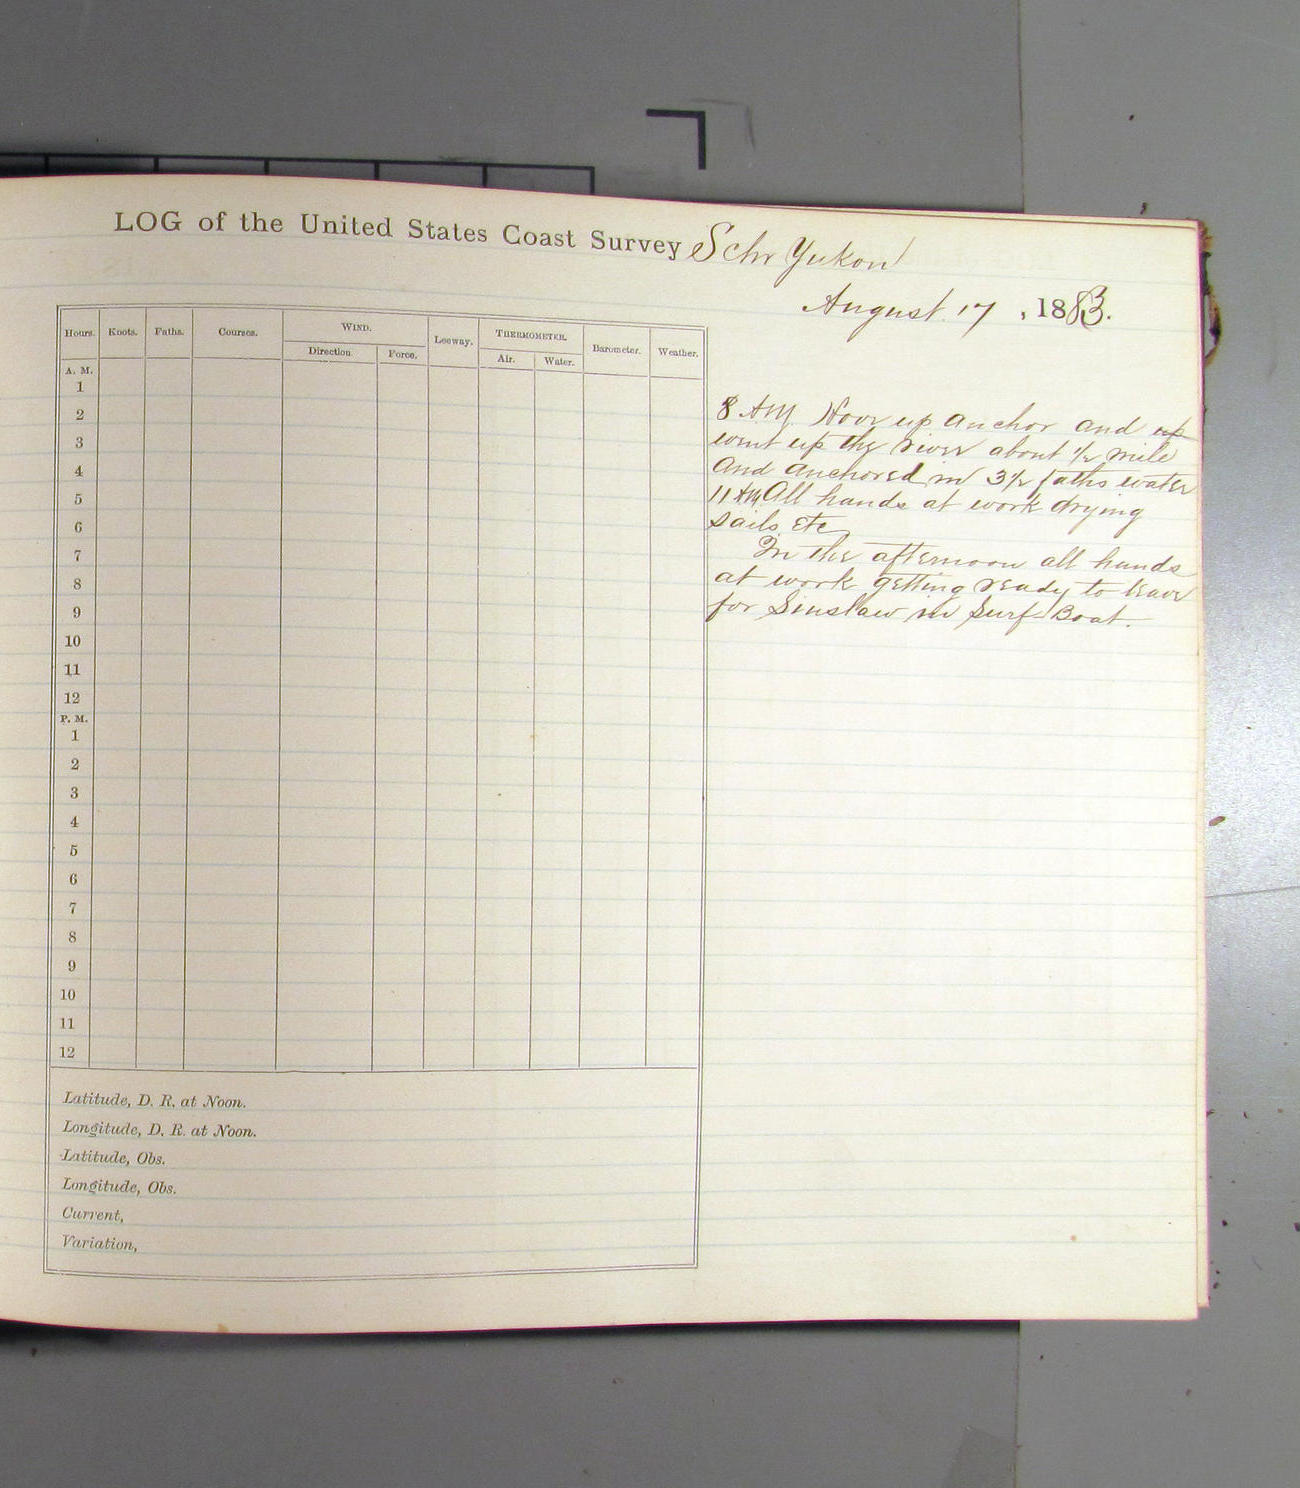 LOG of the United States Coast Survey Schr Yukon
August 17, 1883.
Hours. Knots. Faths. Courses. WIND. Leeway. THERMOMETER. Barometer. Weather.
Direction. Force. Air. Water.
A. M.
1
2
3
4
5
6
7
8
9
10
11
12
P. M.
1
2
3
4
5
6
7
8
9
10
11
12
Latitude, D. R. at Noon.
Longitude, D. R. at Noon.
Latitude, Obs.
Longitude, Obs.
Current,
Variation,
8 AM Hove up anchor and up
went up the river about 1/2 mile
and anchored in 3 1/2 faths water
11 AM All hands at work drying
sails etc
In the afternoon all hands
at work getting ready to leave
for Siuslaw in Surf-Boat.